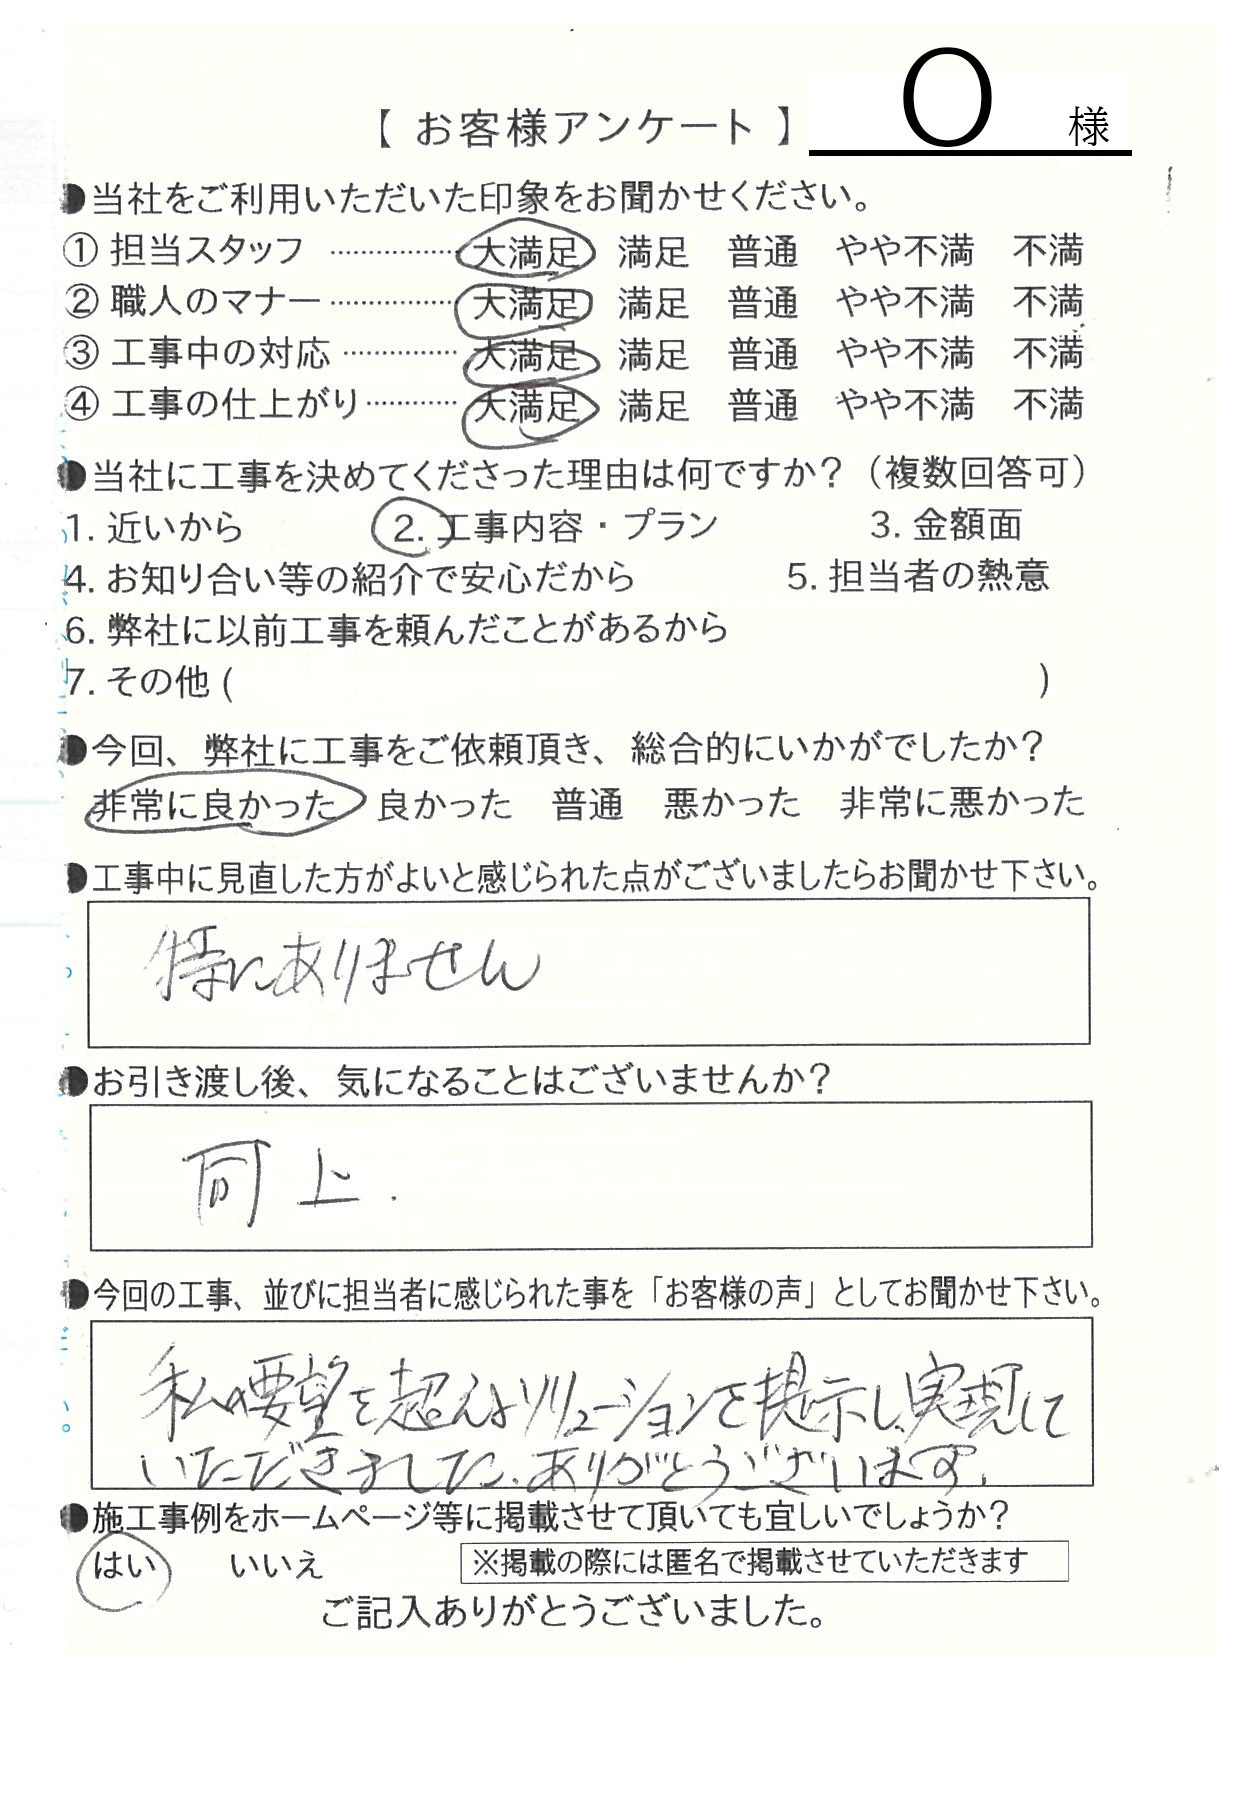 【 お客様アンケート 】 O 様
●当社をご利用いただいた印象をお聞かせください。
① 担当スタッフ ……………大満足 満足 普通 やや不満 不満
② 職人のマナー……………大満足 満足 普通 やや不満 不満
③ 工事中の対応 …………… 大満足 満足 普通 やや不満 不満
④ 工事の仕上がり………… 大満足 満足 普通 やや不満 不満
●当社に工事を決めてくださった理由は何ですか？（複数回答可）
1. 近いから 2. 工事内容・プラン 3. 金額面
4. お知り合い等の紹介で安心だから 5. 担当者の熱意
6. 弊社に以前工事を頼んだことがあるから
7. その他 ( )
●今回、弊社に工事をご依頼頂き、総合的にいかがでしたか？
非常に良かった 良かった 普通 悪かった 非常に悪かった
●工事中に見直した方がよいと感じられた点がございましたらお聞かせ下さい。
特にありません
●お引き渡し後、気になることはございませんか？
同上.
●今回の工事、並びに担当者に感じられた事を「お客様の声」としてお聞かせ下さい。
私の要望を超えよソリューションを提示し、実現して
いただきました。ありがとうございます。
●施工事例をホームページ等に掲載させて頂いても宜しいでしょうか？
はい いいえ ※掲載の際には匿名で掲載させていただきます
ご記入ありがとうございました。